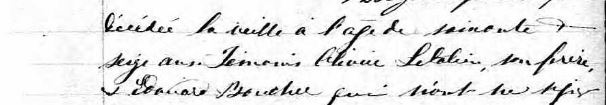 décédée la veille à l'age de soixante &
seize ans. Témoins Olivier Letalien, son frère,
& Edouard Boucher qui n'ont su signer